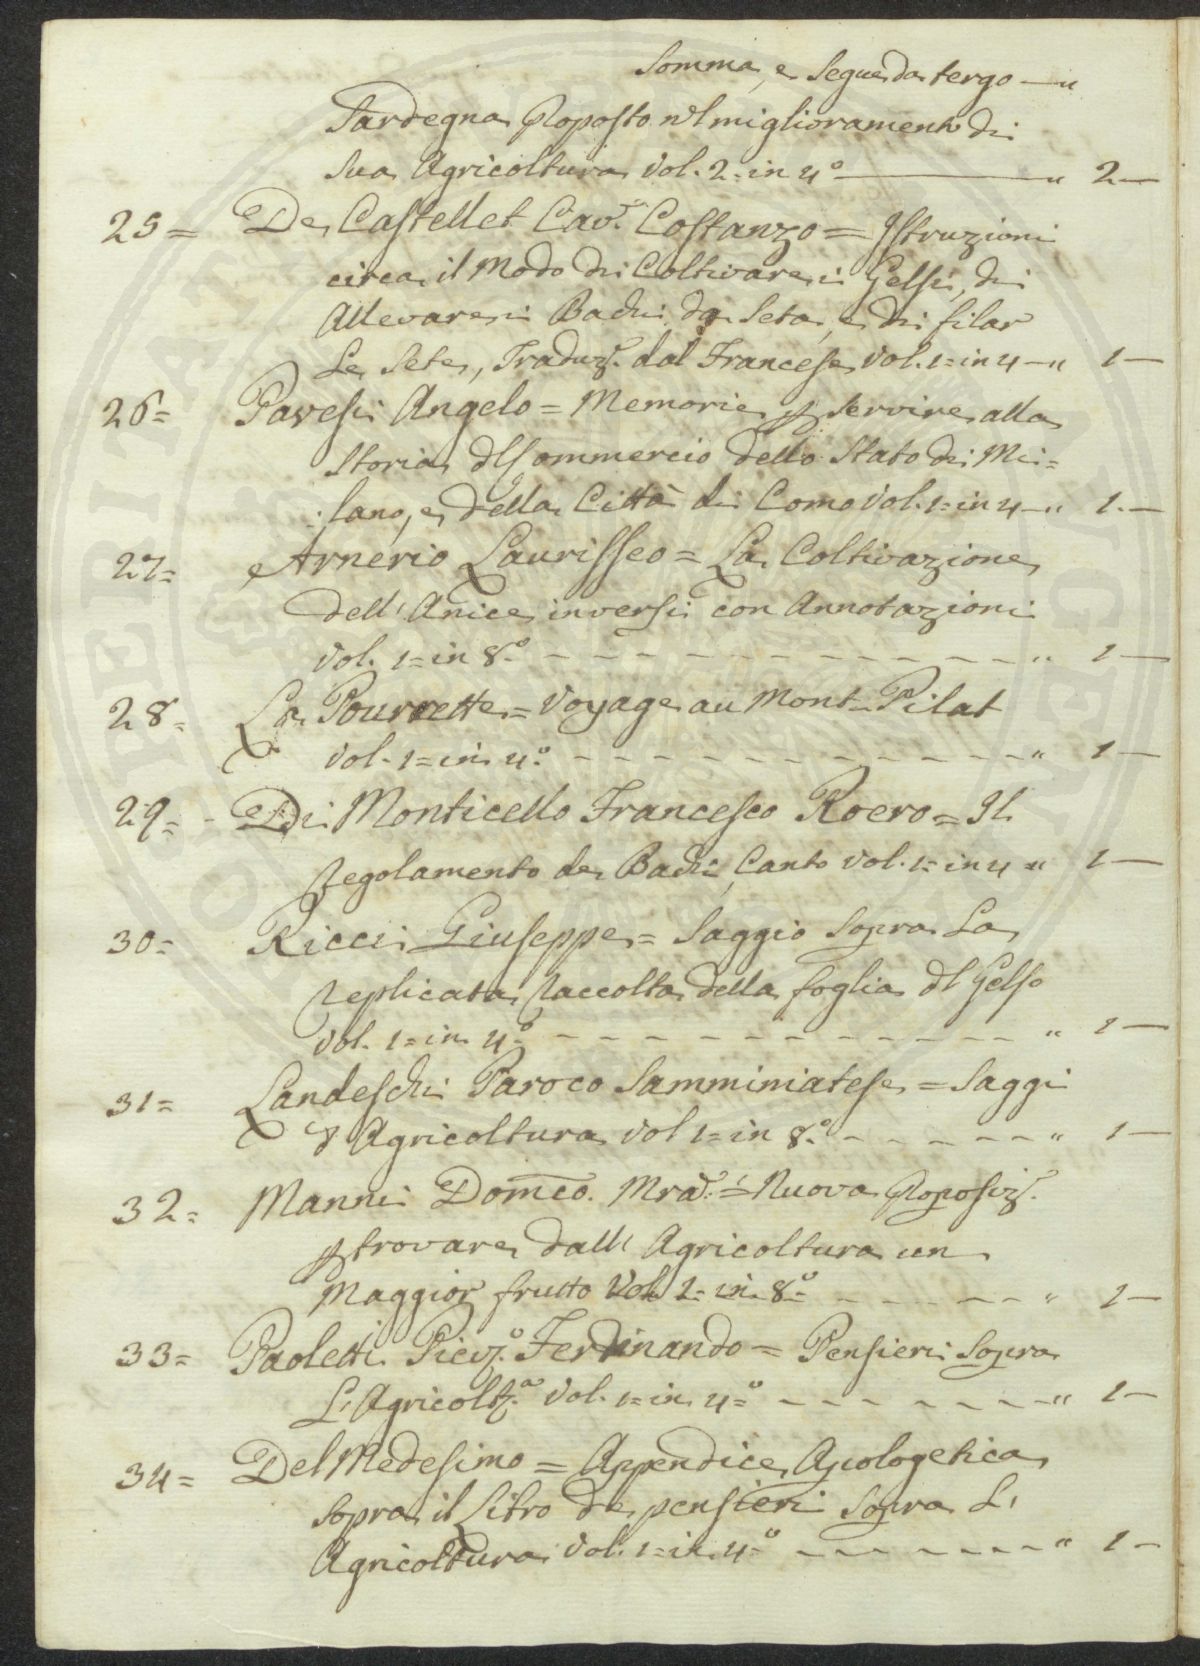 Somma, e Segue da tergo — "
Sardegna Proposto nel miglioramento di
Sua Agricoltura Vol. 2. in 4.° — " 2 —
25 = De Castellet Cav.r Costanzo = Istruzioni
circa il Modo di Coltivare i Gelsi, di
Allevare i Bachi da Seta, e di filar
Le Sete, Traduz.e dal Francese Vol. 1 = in 4 — " 1 —
26 = Pavesi Angelo = Memorie p servire alla
Storia del Commercio dello Stato di Mi =
: lano, e della Città di Como Vol. 1 = in 4 — " 1. —
27 = Arnerio Laurisseo = La Coltivazione
dell' Anice in versi con Annotazioni
Vol. 1 = in 8.° - - - - - - - - - - - - - " 1 —
28 = La Pourrette = Voyage au Mont-Pilat
Vol. 1 = in 4.° - - - - - - - - - - - - " 1 —
29 = - Di Monticello Francesco Roero = Il
regolamento de Bachi, Canto Vol. 1 = in 4 = " 1 —
30 = Ricci Giuseppe = Saggio Sopra La
replicata raccolta della foglia del Gelso
Vol. 1 = in 4.° - - - - - - - - - - - - " 1 —
31 = Landeschi Paroco Samminiatese = Saggi
d' Agricoltura Vol 1 = in 8.° - - - - - - " 1 —
32 = Manni Domeco. Mra. = Nuova Proposiz.e
p trovare dall' Agricoltura un
Maggior frutto Vol. 1 = in 8.° - - - - - " 1 —
33 = Paoletti Piev.o Ferdinando = Pensieri Sopra
L' Agricolt.a Vol. 1 = in 4 = ° - - - - - - - " 1 —
34 = Del Medesimo = Appendice Apologetica
Sopra il Libro de pensieri Sopra L'
Agricoltura Vol. 1 = in 4 = ° - - - - - - - " 1 —